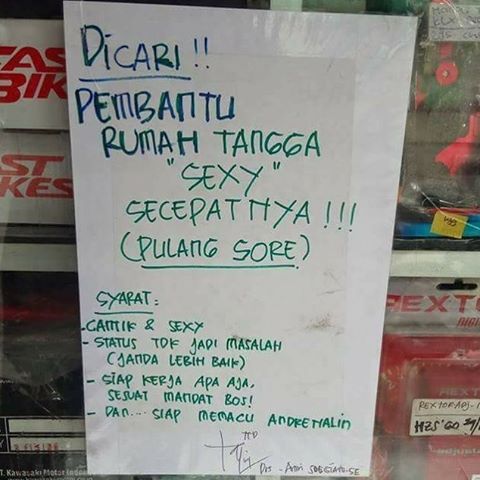 DICARI !!
PEMBANTU
RUMAH TANGGA
"SEXY"
SECEPATNYA !!!
(PULANG SORE)
SYARAT :
- CANTIK & SEXY
- STATUS TDK JADI MASALAH
(JANDA LEBIH BAIK)
- SIAP KERJA APA AJA,
SESUAI MANDAT BOS!
- DAN.... SIAP MEMACU ANDRENALIN
TTD
FAST
BIKES
ST
KES
REXTOR
DIGI
T. Kawasaki Motor Indon